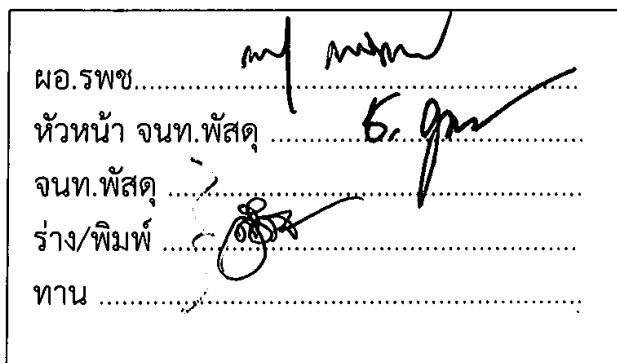 ผอ.รพช....................................................................
หัวหน้า จนท.พัสดุ ................................................
จนท.พัสดุ ..............................................................
ร่าง/พิมพ์ ..............................................................
ทาน .......................................................................